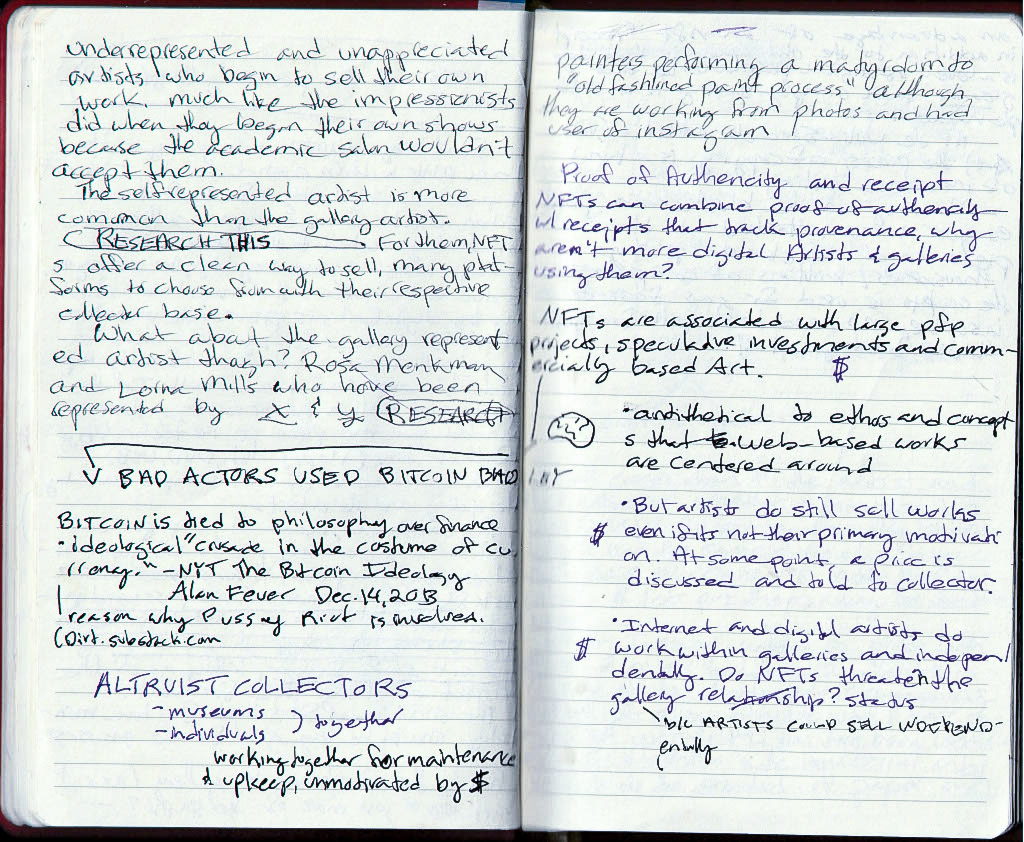 underrepresented and unappreciated
artists who begin to sell their own
work, much like the impressionists
did when they began their own shows
because the academic salon wouldn't
accept them.
The self-represented artist is more
common than the gallery artist.
RESEARCH THIS For them, NFT
s offer a clean way to sell, many plat-
forms to choose from with their respective
collector base.
What about the gallery represent
ed artist though? Rosa Menkman
and Lorna Mills who have been
represented by X & Y RESEARCH
BAD ACTORS USED BITCOIN BAD
BITCOIN is tied to philosophy over finance
• ideological "crusade in the costume of cu
rrency." - NYT The Bitcoin Ideology
Alan Feuer Dec. 14, 2013
reason why Pussy Riot is involved.
(Dirt.substack.com
ALTRUIST COLLECTORS
- museums
- individuals ) together
working together for maintenance
& upkeep, unmotivated by $
painters performing a matyrdom to
"old fashioned paint process" although
they are working from photos and had
user of instagram
Proof of Authencity and receipt
NFTs can combine proof of authencity
w/ receipts that track provenance, why
aren't more digital Artists & galleries
using them?
NFTs are associated with large pfp
projects, speculative investments and comm-
ercially based Art. $
• antithetical to ethos and concept
s that web-based works
are centered around
• But artists do still sell works
$ even if its not their primary motivati
on. At some point, a price is
discussed and told to collector.
• Internet and digital artists do
$ work within galleries and independ
dently. Do NFTs threaten the
gallery relationship? status
b/c ARTISTS COULD SELL INDEPEND-
ently